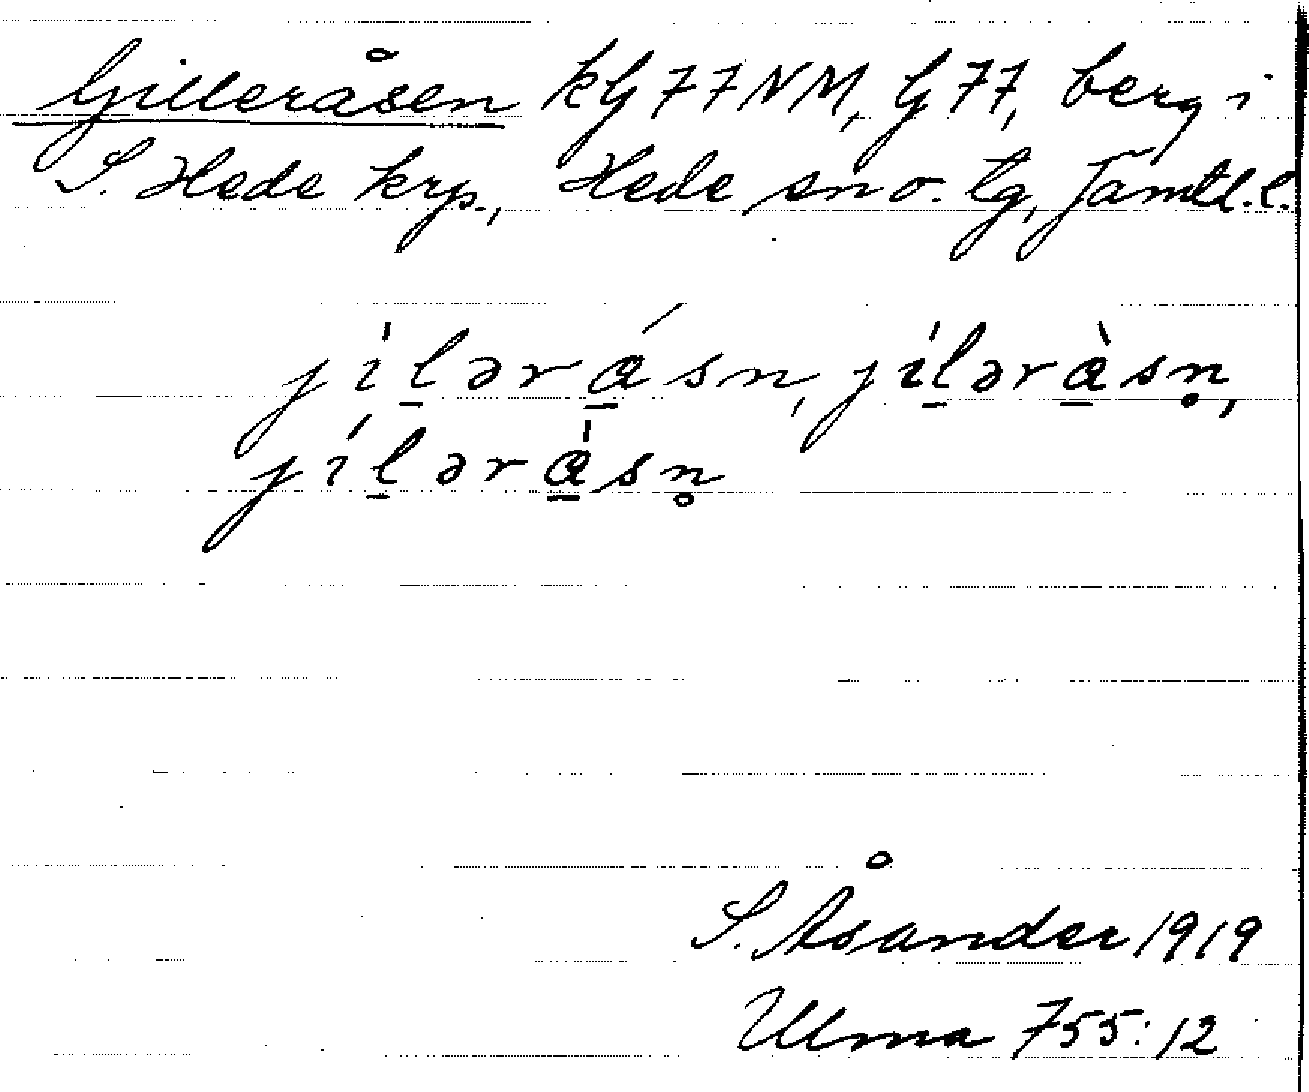 Gilleråsen kG 77 NM, G 77, berg i
S. Hede krp., Hede sn o. tg, Jämtl. l.
jìl̠ərá̠sn, jíl̠ərà̠sn̥,
jíl̠ərà̠sn̥
S. Åsander 1919
Ulma 755:12